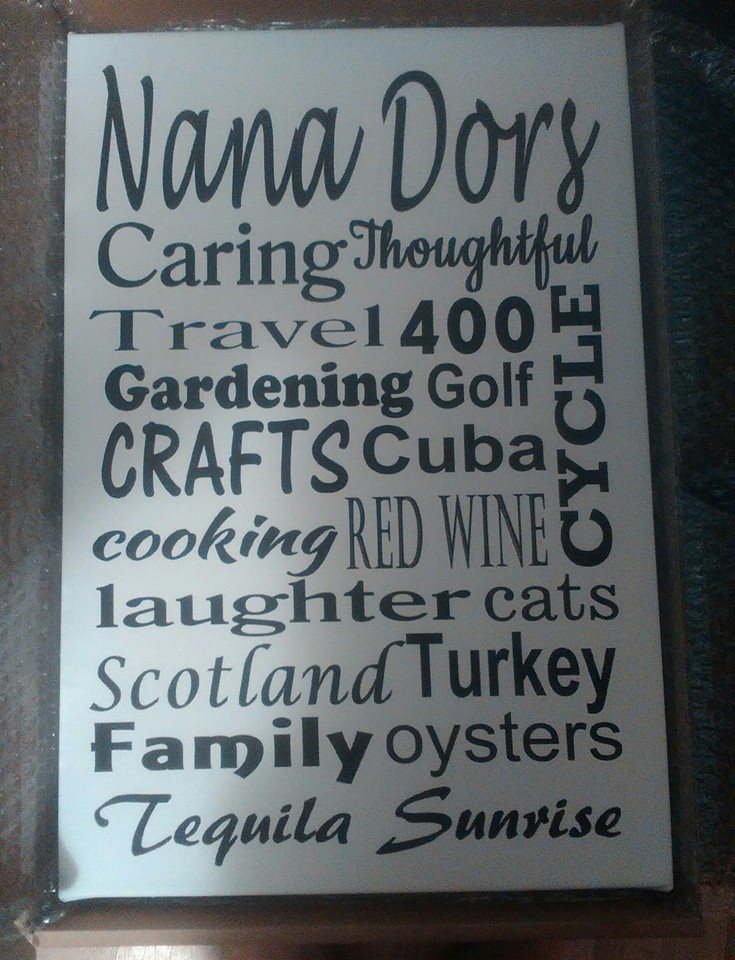 Nana Dors
Caring Thoughtful
Travel 400
CYCLE
Gardening Golf
CRAFTS Cuba
cooking RED WINE
laughter cats
Scotland Turkey
Family oysters
Tequila Sunrise